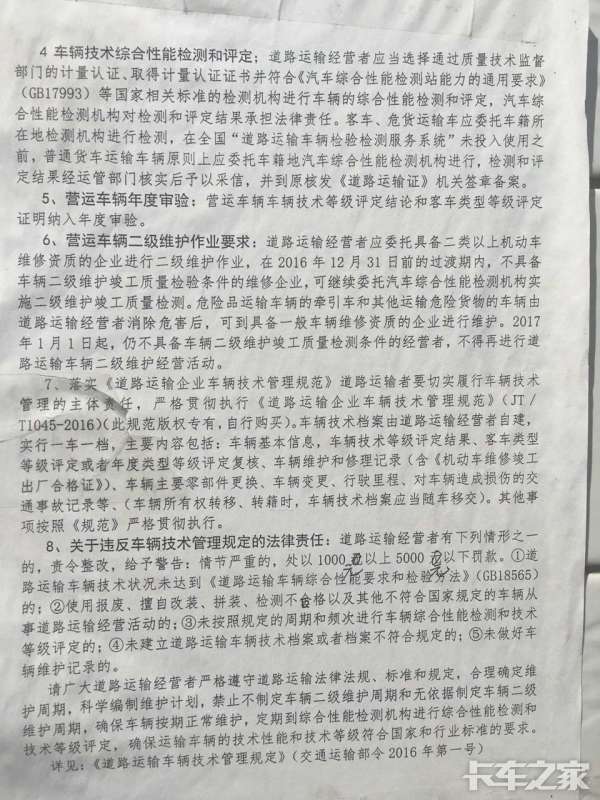 4 车辆技术综合性能检测和评定；道路运输经营者应当选择通过质量技术监督
部门的计量认证、取得计量认证证书并符合《汽车综合性能检测站能力的通用要求》
（GB17993）等国家相关标准的检测机构进行车辆的综合性能检测和评定，汽车综
合性能检测机构对检测和评定结果承担法律责任。客车、危货运输车应委托车籍所
在地检测机构进行检测，在全国“道路运输车辆检验检测服务系统”未投入使用之
前，普通货车运输车辆原则上应委托车籍地汽车综合性能检测机构进行，检测和评
定结果经运管部门核实后予以采信，并到原核发《道路运输证》机关签章备案。
5、营运车辆年度审验：营运车辆车辆技术等级评定结论和客车类型等级评定
证明纳入年度审验。
6、营运车辆二级维护作业要求：道路运输经营者应委托具备二类以上机动车
维修资质的企业进行二级维护作业，在 2016 年 12 月 31 日前的过渡期内，不具备
车辆二级维护竣工质量检验条件的维修企业，可继续委托汽车综合性能检测机构实
施二级维护竣工质量检测。危险品运输车辆的牵引车和其他运输危险货物的车辆由
道路运输经营者消除危害后，可到具备一般车辆维修资质的企业进行维护。2017
年 1 月 1 日起，仍不具备车辆二级维护竣工质量检测条件的经营者，不得再进行道
路运输车辆二级维护经营活动。
7、落实《道路运输企业车辆技术管理规范》道路运输者要切实履行车辆技术
管理的主体责任，严格贯彻执行《道路运输企业车辆技术管理规范》（JT／
T1045-2016）(此规范版权专有，自行购买）。车辆技术档案由道路运输经营者自建，
实行一车一档，主要内容包括：车辆基本信息，车辆技术等级评定结果、客车类型
等级评定或者年度类型等级评定复核、车辆维护和修理记录（含《机动车维修竣工
出厂合格证》）、车辆主要零部件更换、车辆变更、行驶里程、对车辆造成损伤的交
通事故记录等、（车辆所有权转移、转籍时，车辆技术档案应当随车移交）。其他事
项按照《规范》严格贯彻执行。
8、关于违反车辆技术管理规定的法律责任：道路运输经营者有下列情形之一
的，责令整改，给予警告：情节严重的，处以 1000 元以上 5000 元以下罚款。①道
路运输车辆技术状况未达到《道路运输车辆综合性能要求和检验方法》（GB18565）
的；②使用报废、擅自改装、拼装、检测不合格以及其他不符合国家规定的车辆从
事道路运输经营活动的；③未按照规定的周期和频次进行车辆综合性能检测和技术
等级评定的；④未建立道路运输车辆技术档案或者档案不符合规定的；⑤未做好车
辆维护记录的。
请广大道路运输经营者严格遵守道路运输法律法规、标准和规定，合理确定维
护周期，科学编制维护计划，禁止不制定车辆二级维护周期和无依据制定车辆二级
维护周期，确保车辆按期正常维护，定期到综合性能检测机构进行综合性能检测和
技术等级评定，确保运输车辆的技术性能和技术等级符合国家和行业标准的要求。
详见：《道路运输车辆技术管理规定》（交通运输部令 2016 年第一号）
卡车之家